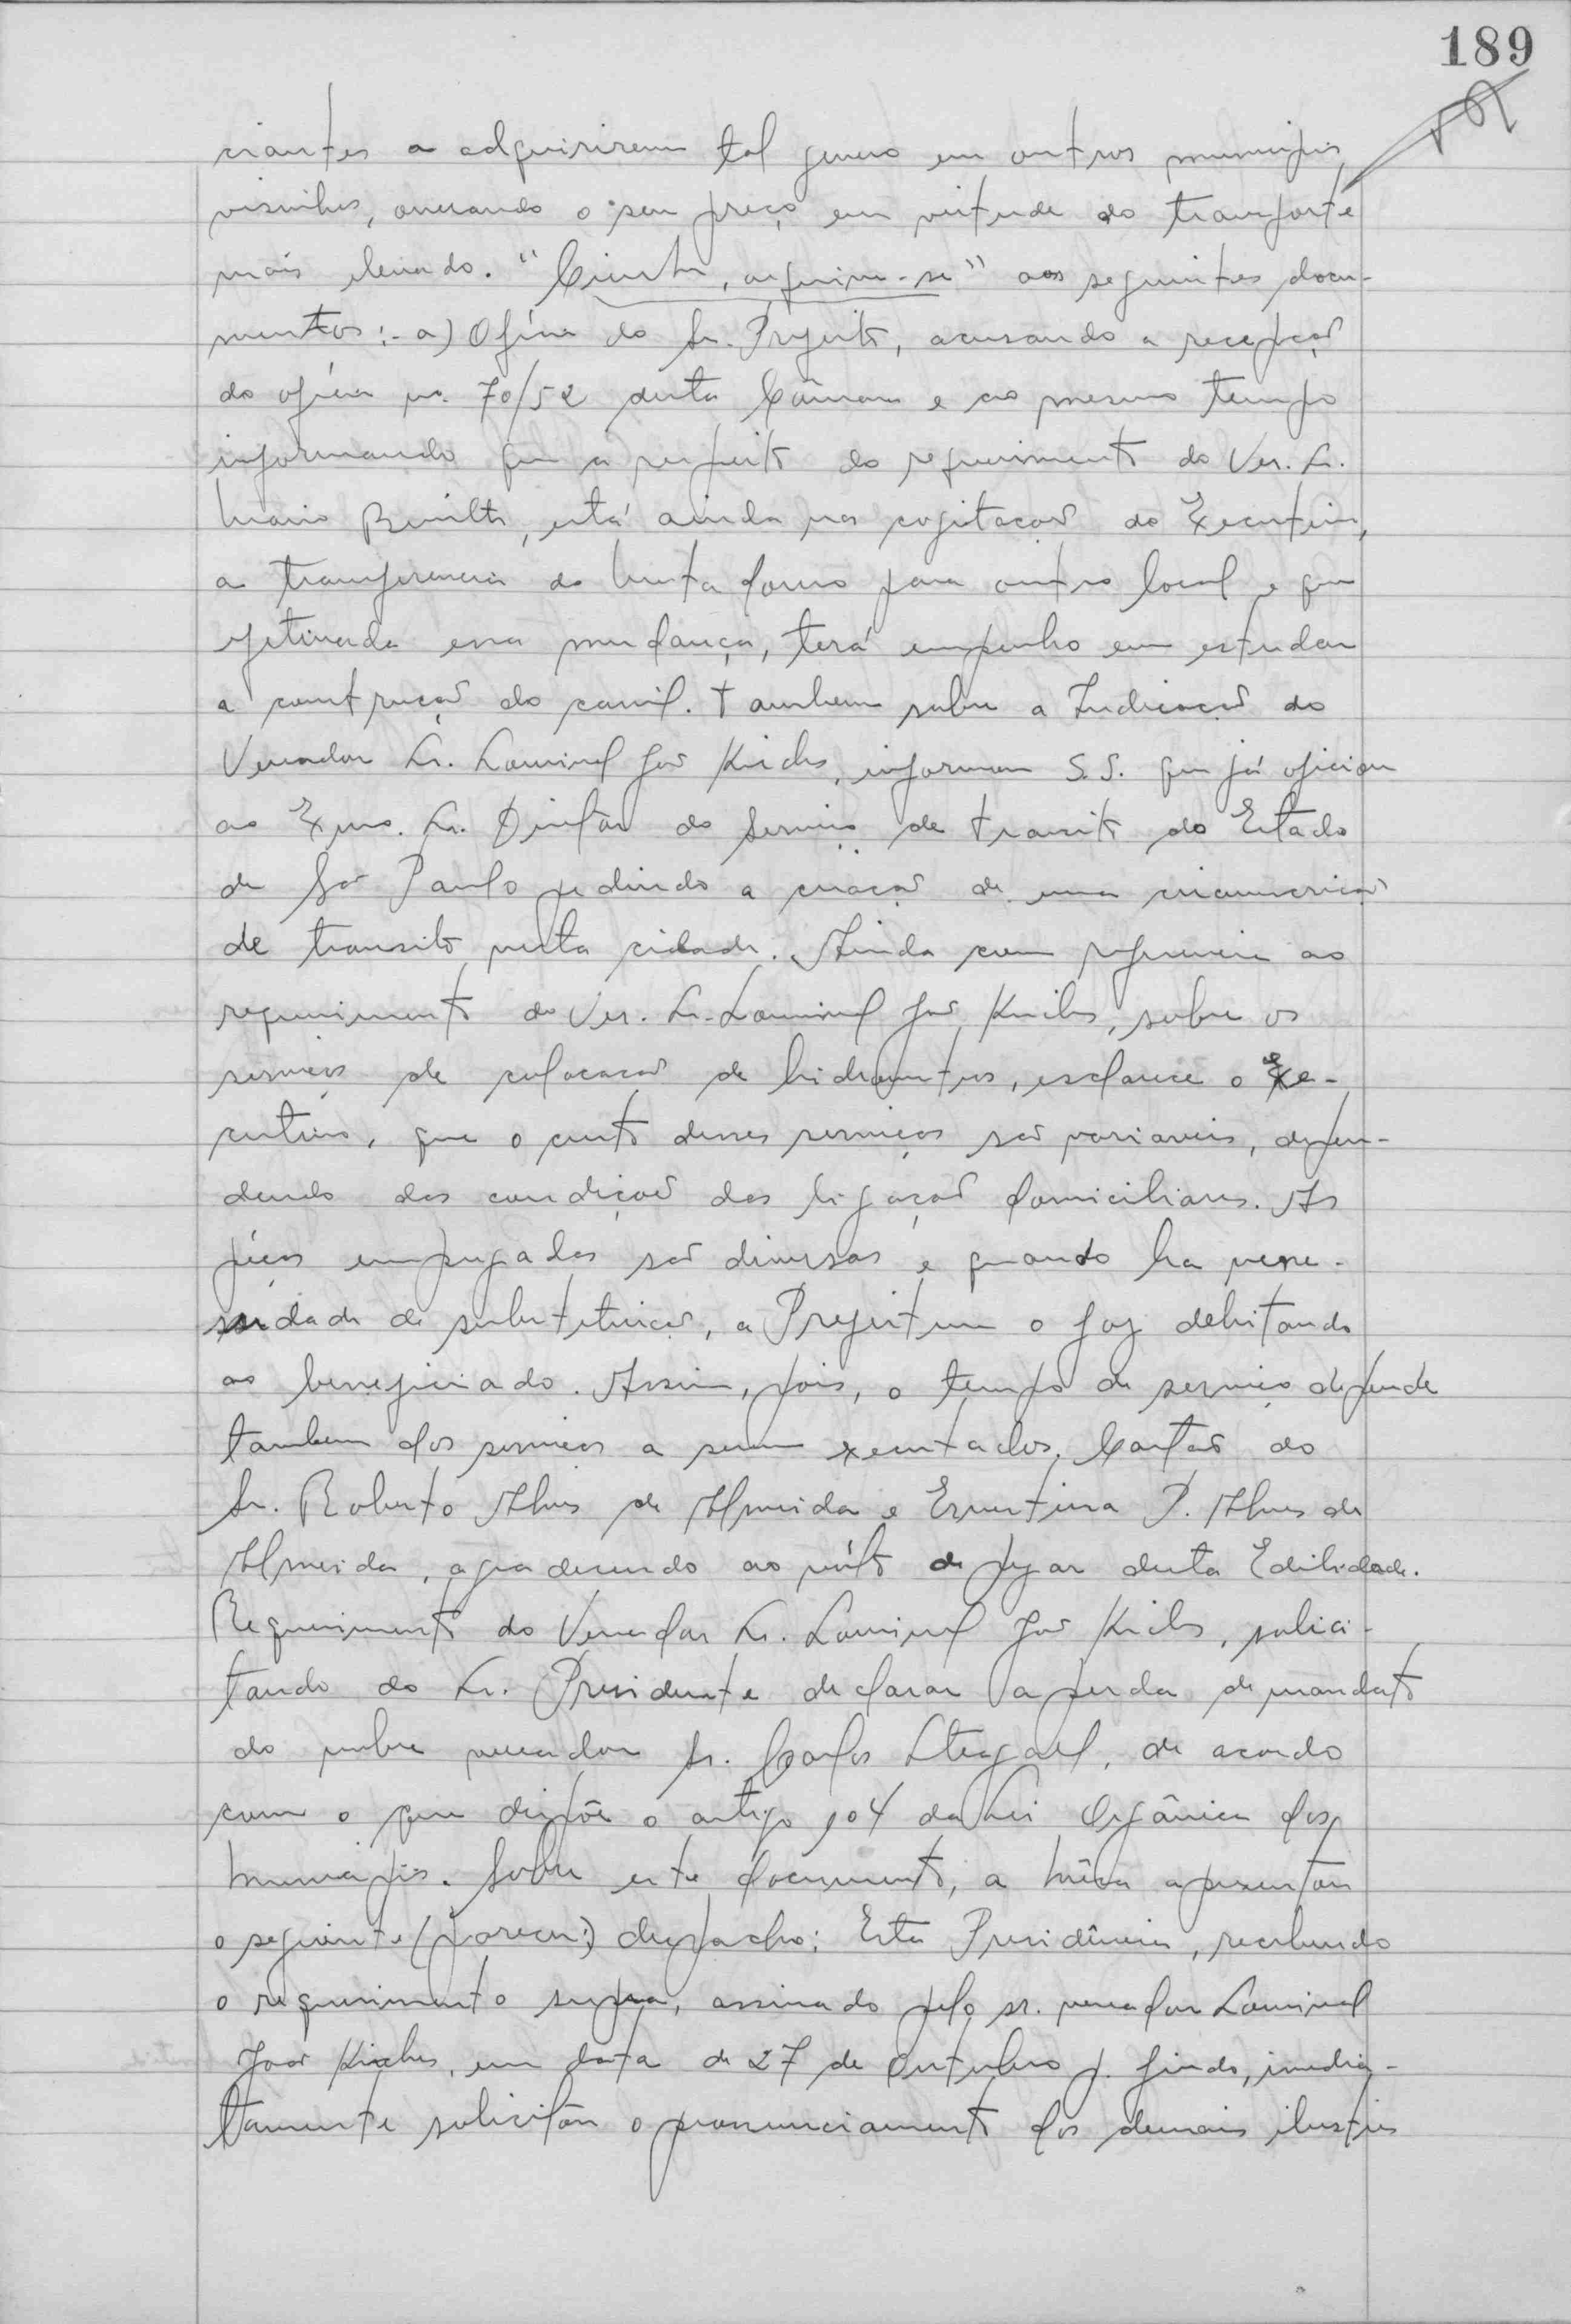 189
ciantes a adquirirem tal genero em outros municipios
visinhos, onerando o seu preço em virtude do transporte
mais elevado. "Ciente, arquive-se" aos seguintes docu-
mentos:- a) Ofício do Sr. Prefeito, acusando a recepção
do ofício no. 70/52 desta Câmara e ao mesmo tempo
informando que a respeito do requerimento do Ver. Sr.
Mario, está ainda nas cogitações do Executivo,
a transferencia do Matadouro para outro local e que
efetivada essa mudança, terá empenho em estudar
a construção do canil. Tambem sobre a Indicação do
Vereador Sr. Lourival João Kirches, informou S.S. que já oficiou
ao Exmo. Sr. Diretor do Serviço de transito do Estado
de São Paulo pedindo a criação de uma circunscrição
de transito nesta cidade. Ainda com referencia ao
requerimento do Ver. Sr. Lourival João Kirches, sobre os
serviços de colocação de hidrometros, esclarece o Exe-
cutivo, que o custo desses serviços são variaveis, depen-
dendo das condições das ligações domiciliares. As
peças empregadas são diversas e quando ha neces-
sidade de substituição, a Prefeitura o faz debitando
ao beneficiado. Assim, pois, o tempo de serviço depende
tambem dos serviços a serem executados. Cartão do
Sr. Roberto Alves de Almeida e Ernestina P. Alves de
Almeida, agradecendo ao voto de pezar desta Edilidade.
Requerimento do Vereador Sr. Lourival João Kirches, solici-
tando do Sr. Presidente declarar a perda de mandato
do nobre vereador Sr. Carlos Stegall, de acordo
com o que dispõe o artigo 104 da Lei Orgânica dos
Municipios. Sobre este documento, a Mêsa apresentou
o seguinte (parecer:) despacho: Esta Presidência, recebendo
o requerimento supra, assinado pelo sr. vereador Lourival
João Kirches, em data de 27 de Outubro p. findo, imedia-
tamente solicitou o pronunciamento dos demais ilustres